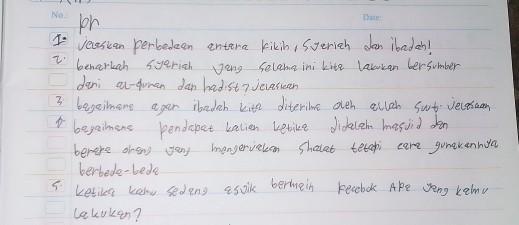 No.: Date:
pr
1. Jelaskan perbedaan antara Fikih, Syeriah dan ibadah!
2. benarkah syariah yang selama ini kita lakukan bersumber
dari al-quran dan hadist? jelaskan
3. bagaimana agar ibadah kita diterima oleh allah swt. jelaskan
4. bagaimana pendapat kalian ketika didalam masjid dan
berepe orang yang mengerjakan shalat tetapi cara gunakannya
berbeda-beda
5. ketika kamu sedang asyik bermain Pecebok Ape yang kalmu
lakukan?